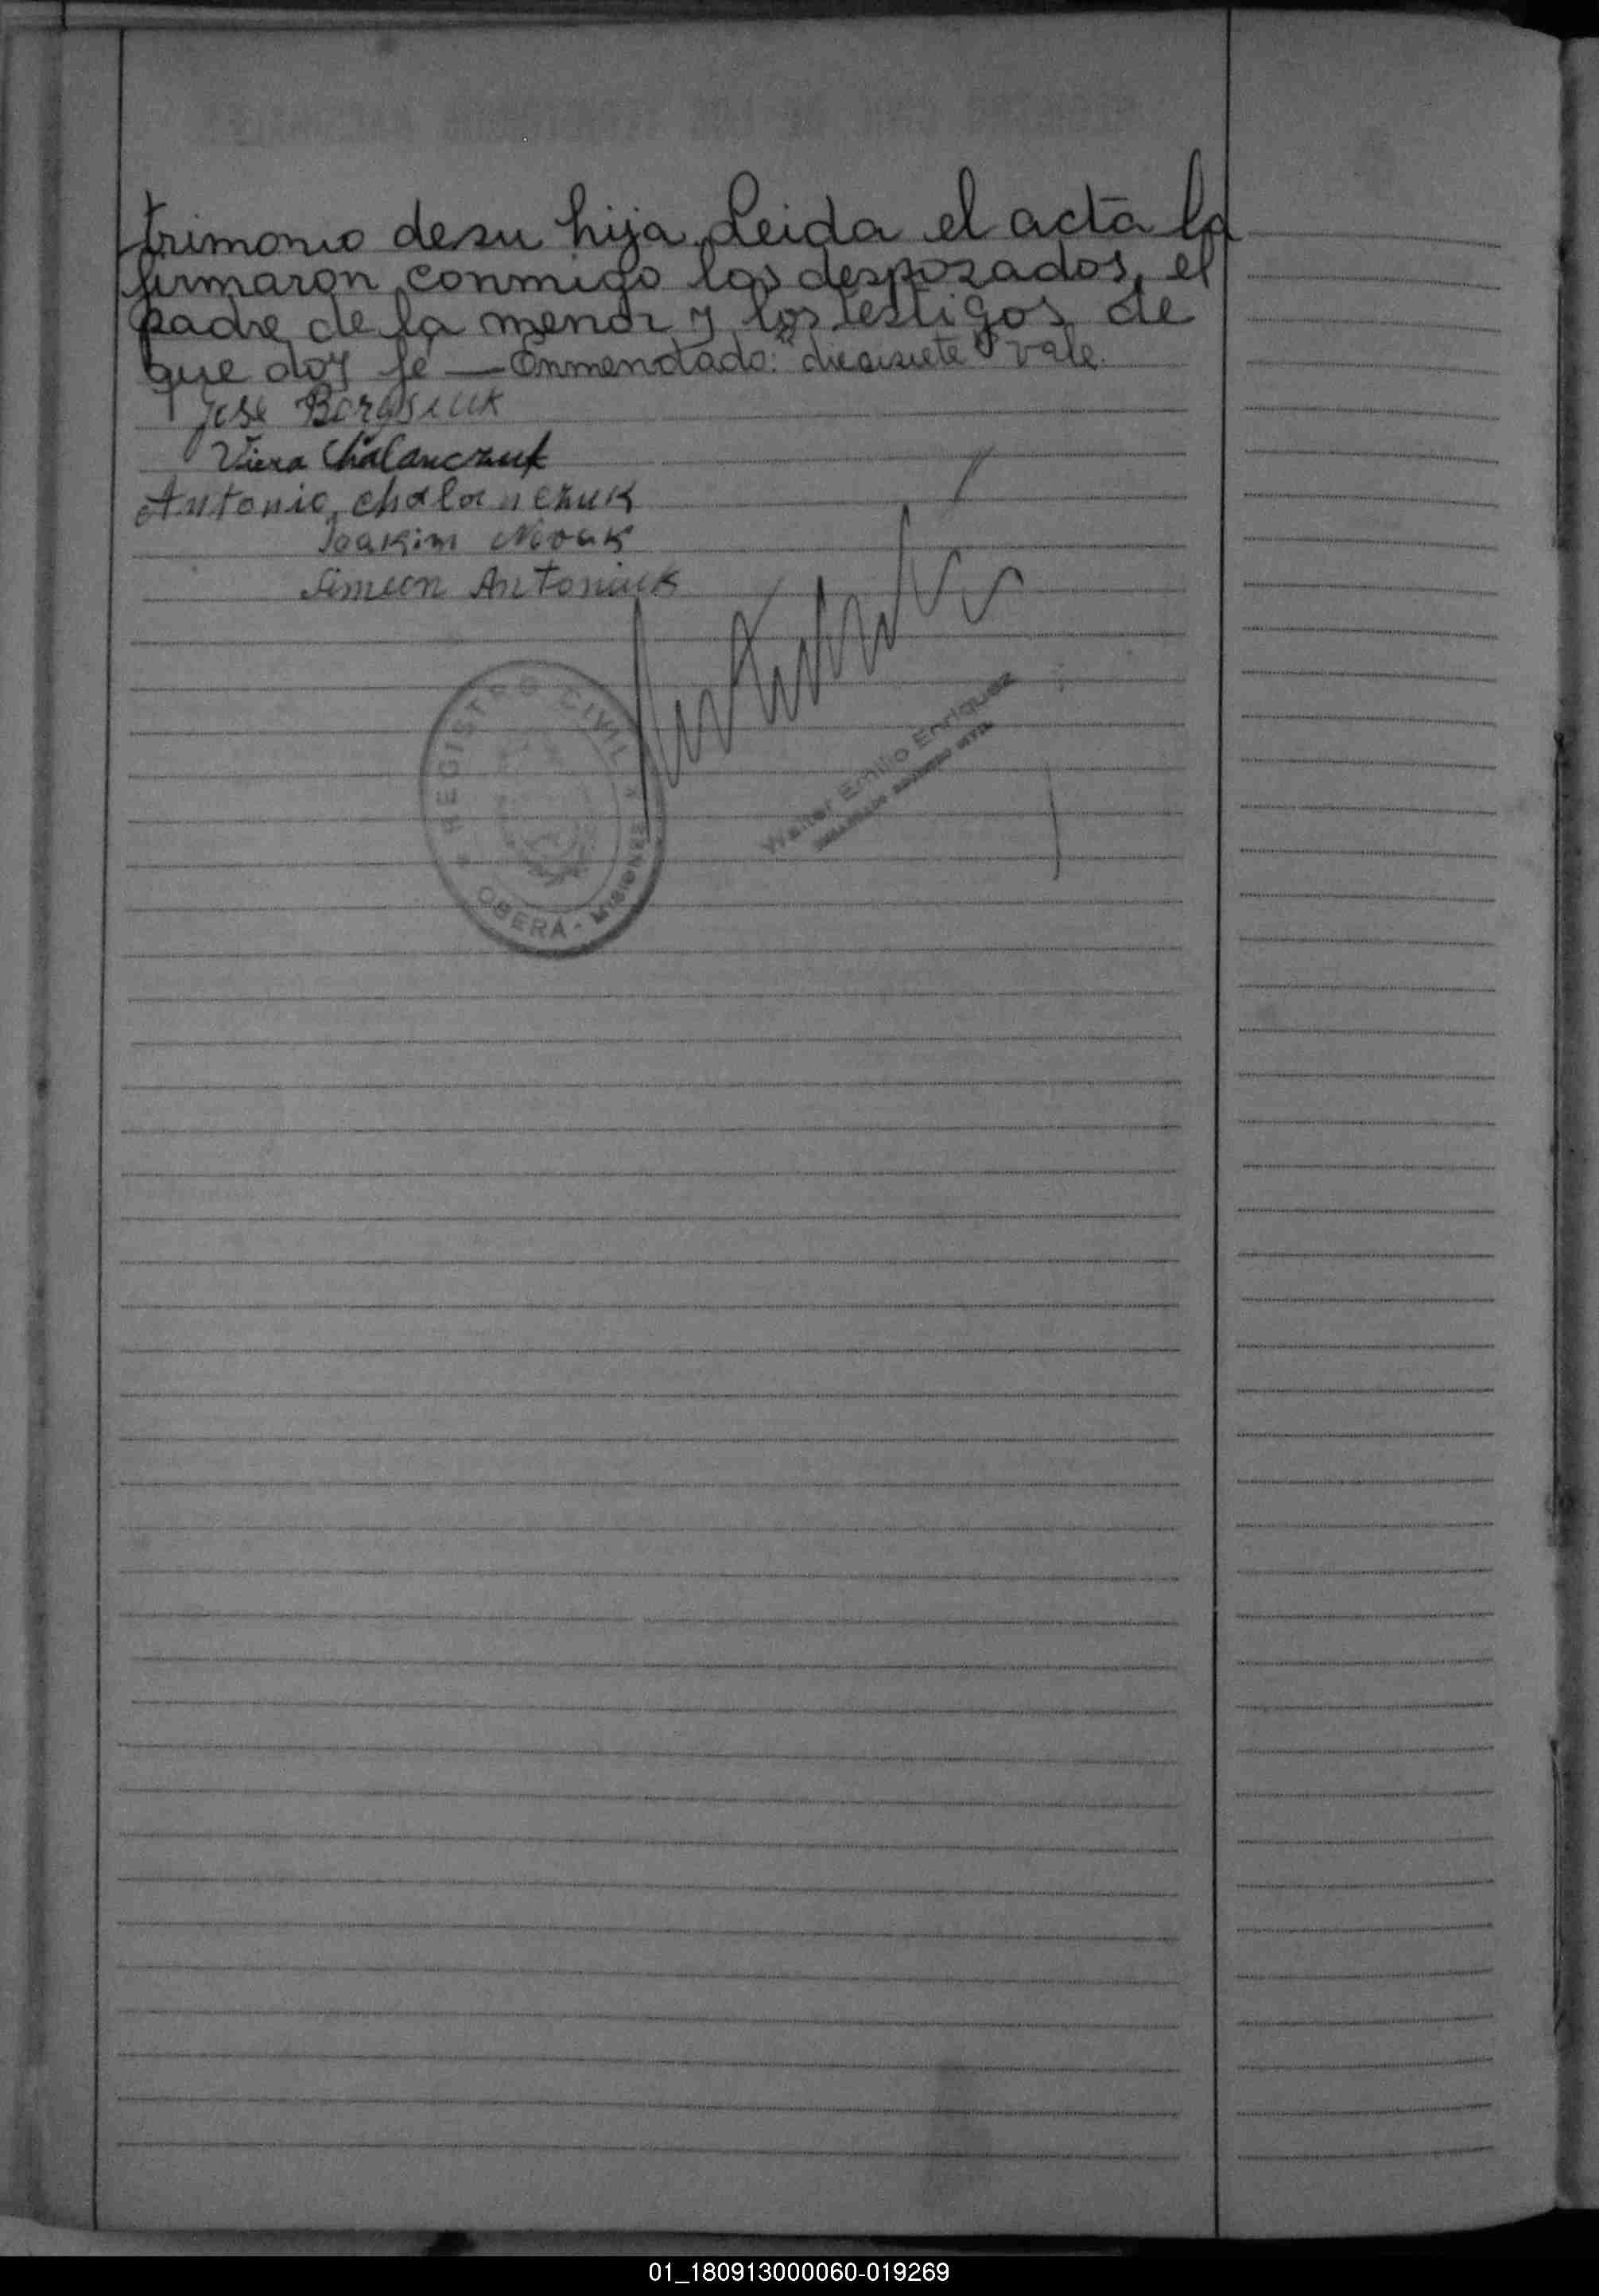 trimonio de su hija. Leida el acta la
firmaron conmigo los desposados, el
padre de la menor y los testigos de
que doy fe — Enmendado: "diecisiete" vale.
José Borosiuk
Viera Chalanczuk
Antonio Chalanczuk
Joakim Novak
Simeon Antoniuk
REGISTRO CIVIL
OBERÁ - MISIONES
Walter Emilio Enriquez
REGISTRO CIVIL
01_180913000060-019269